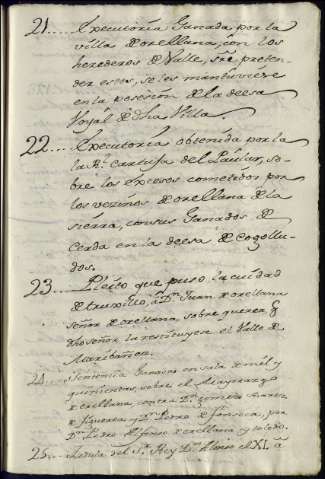 21.... Executoria Ganada por la
villa de orellana, con los
herederos de Valle, sre preten-
der estos, se les mantuviese
en la posesion de la deesa
Boyal de dha Villa.
22.... Executoria obtenida por la
la Rl. cartuja del Paular, so-
bre los excesos cometidos por
los vecinos de orellana de la
sierra, con sus Ganados de
Cerda en la deesa de Cogollu-
dos.
23.... Pleito que puso la ciudad
de truxillo, a Dn. Juan de orellana
señor de orellana, sobre querer q
dho señor la restituyese el Valle de
Maribañez.
24.. Sentencia Ganada en sala de mil y
quinientas, sobre el Mayorazgo
de orellana, contra Dn. Gomez Suarez
de Figueroa y Dn. Pedro de Fonseca, por
Dn. Pedro Alfonso de orellana y toledo.
25.. Zedula del Sr. Rey Dn. Alonso el XI. a